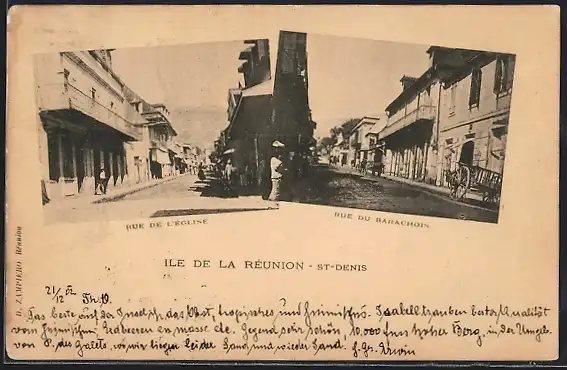 RUE DE L'EGLISE
RUE DU BARACHOIS
ILE DE LA RÉUNION - ST-DENIS
D. ZAMPIERO Réunion
21/12 02 Th. O.
Das beste auf der Insel ist das Obst, tropisches und heimisches. Isabelltrauben bester Qualität
vom heimischen, Erdbeeren en masse etc. Gegend sehr schön, 10.000 fuss hoher Berg, in der Umgeb.
von P. des Galets, wo wir liegen leider Sand und wieder Sand. h. Gr. Erwin